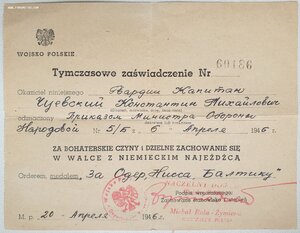 WOJSKO POLSKIE
Tymczasowe zaświadczenie Nr 60186
Okaziciel niniejszego Гвардии Капитан
Цевский Константин Михайлович
odznaczony Приказом Министра Обороны
Народовой Nr 5/Б z 6 Апреля 1946 r.
ZA BOHATERSKIE CZYNY I DZIELNE ZACHOWANIE SIĘ
W WALCE Z NIEMIECKIM NAJEŹDŹCĄ
Orderem, medalem „За Одер, Ниссу, Балтику"
NACZELNY DOWÓDCA
Podpis
M. p. 20 - Апреля 1946 r.
Michał Rola-Żymierski